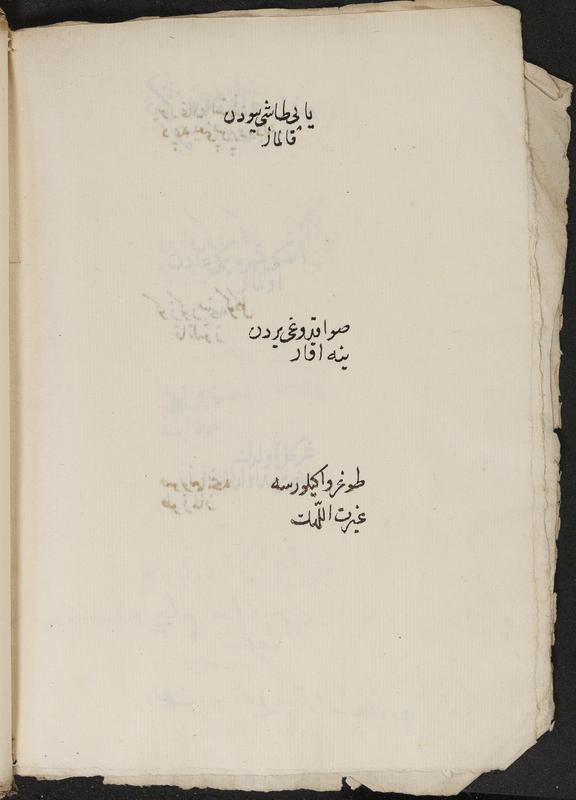 یاپی طاشی یردن
قالماز
صو اقدوغی یردن
ینه اقار
طوغر و اکیلورسه
غیرت اللّهک